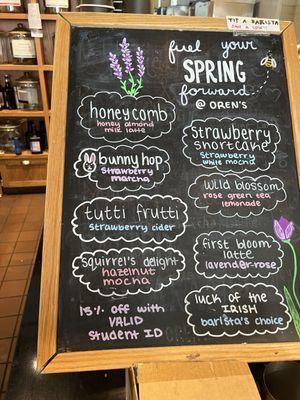 TIP A BARISTA
fuel your
SPRING
forward
@ OREN'S
honeycomb
honey almond
milk latte
bunny hop
strawberry
matcha
tutti frutti
strawberry cider
squirrel's delight
hazelnut
mocha
15% off with
VALID
Student ID
Strawberry
shortcake
strawberry
white mocha
wild blossom
rose green tea
lemonade
first bloom
latte
lavender-rose
luck of the
IRISH
barista's choice